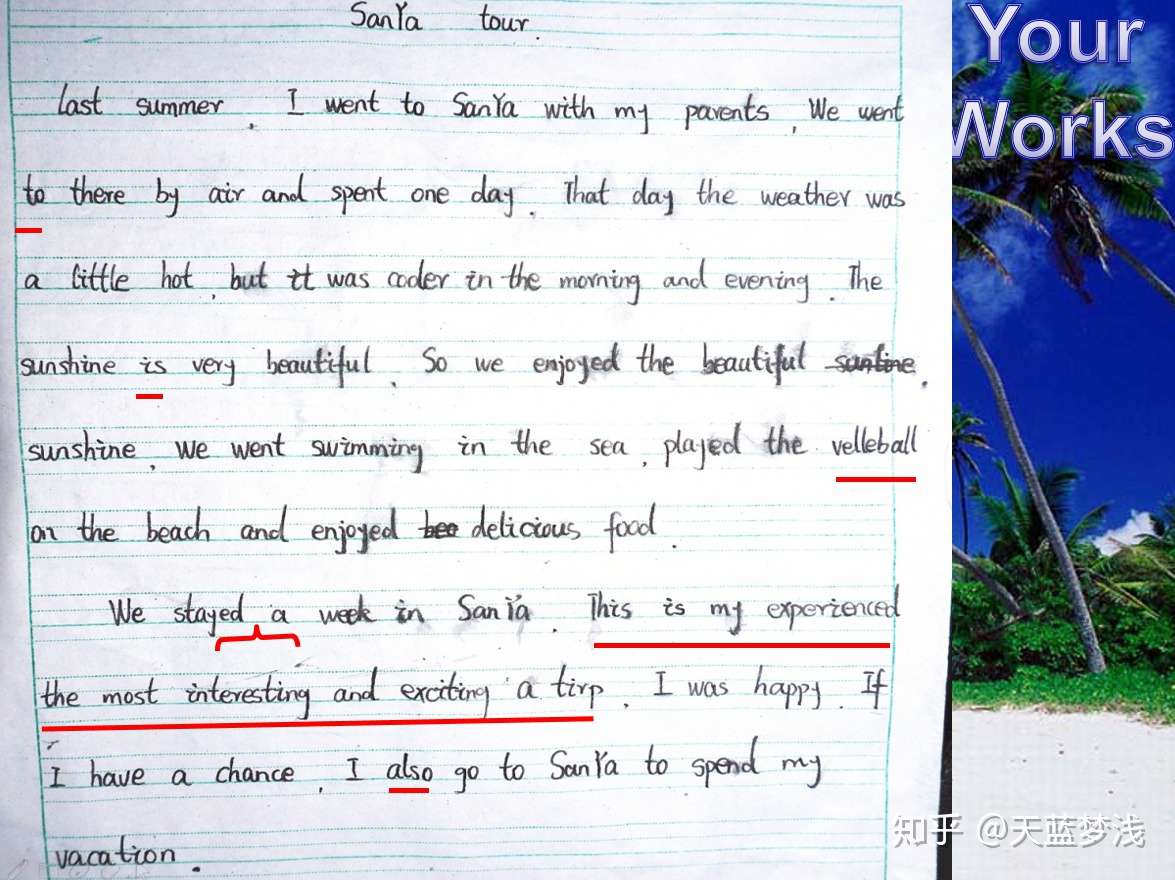 SanYa tour.
Last summer, I went to SanYa with my parents, We went
to there by air and spent one day. That day the weather was
a little hot, but it was cooler in the morning and evening. The
sunshine is very beautiful. So we enjoyed the beautiful
sunshine, We went swimming in the sea, played the velleball
on the beach and enjoyed delicious food.
We stayed a week in SanYa. This is my experienced
the most interesting and exciting a tirp. I was happy. If
I have a chance, I also go to SanYa to spend my
vacation.
Your
Works
知乎 @天蓝梦浅